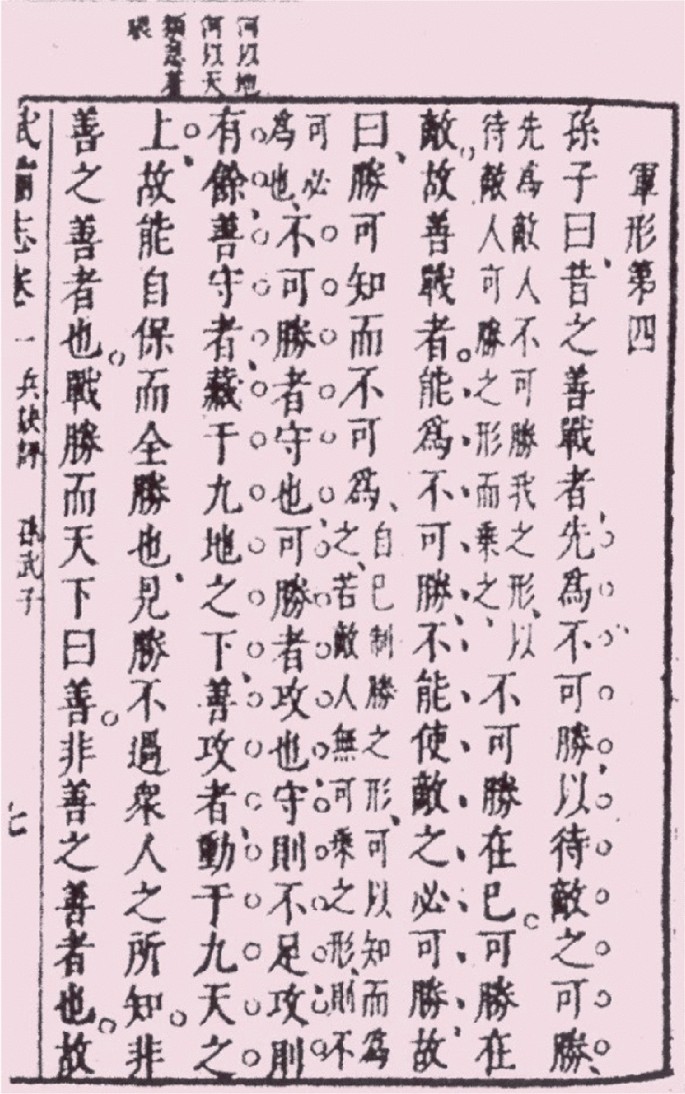 何以地
何以天
眼
軍形第四
孫子曰、昔之善戰者、先爲不可勝、以待敵之可勝、
先爲敵人不可勝我之形、以
待敵人可勝之形而乘之、
不可勝在已。可勝在
敵。故善戰者。能爲不可勝、不能使敵之必可勝、故
曰、勝可知而不可爲、
自已制勝之形、可以知而爲
之、若敵人無可乘之形、則不
可必
爲也、
不可勝者守也、可勝者攻也、守則不足、攻則
有餘、善守者、藏于九地之下、善攻者、動于九天之
上、故能自保而全勝也、見勝不過衆人之所知。非
善之善者也。戰勝而天下曰善。非善之善者也。故
武備志卷一 兵訣評 孫武子 七